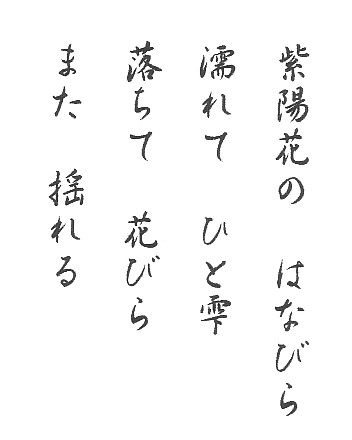 紫陽花の　はなびら
濡れて　ひと雫
落ちて　花びら
また　揺れる